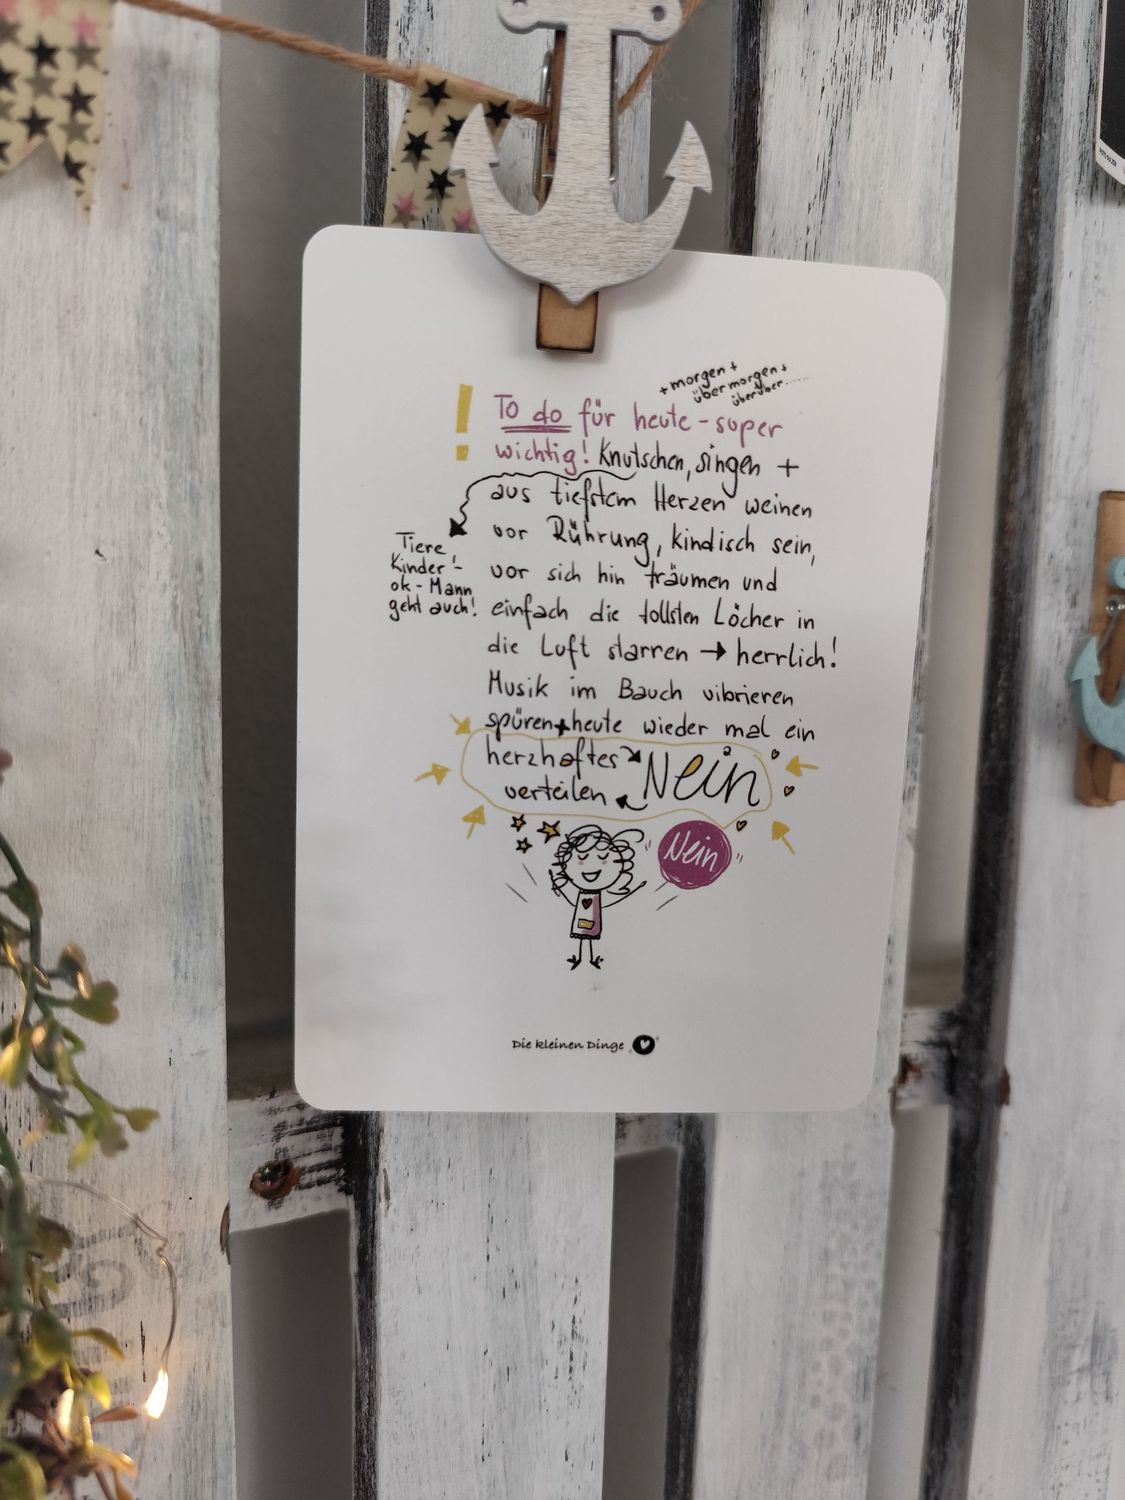 + morgen +
übermorgen +
überüber......
! To do für heute - super
wichtig! Knutschen, singen +
aus tiefstem Herzen weinen
vor Rührung, kindisch sein,
vor sich hin träumen und
einfach die tollsten Löcher in
die Luft starren → herrlich!
Musik im Bauch vibrieren
spüren + heute wieder mal ein
herzhaftes Nein
verteilen
Tiere
Kinder! -
ok - Mann
geht auch!
Nein
Die kleinen Dinge